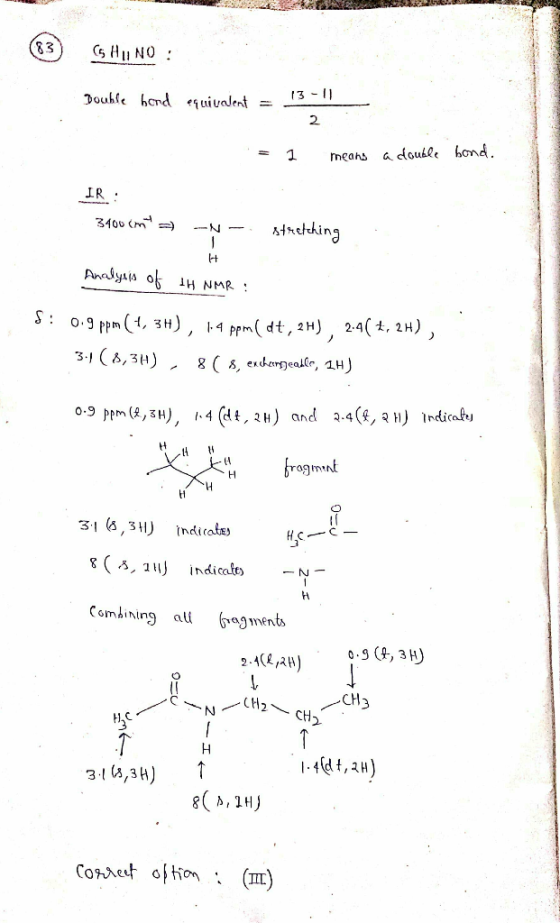 83 C5H11NO :
Double bond equivalent = 13-11
2
= 1 means a double bond.
IR :
3400 cm⁻¹ ⇒ -N- stretching
H
Analysis of 1H NMR :
δ: 0.9 ppm (t, 3H), 1.4 ppm (dt, 2H), 2.4 (t, 2H),
3.1 (s, 3H), 8 (s, exchangeable, 1H)
0.9 ppm (t, 3H), 1.4 (dt, 2H) and 2.4 (t, 2H) indicates
H H H H H H H fragment
3.1 (s, 3H) indicates H3C-C-
O
8 (s, 1H) indicates -N-
H
Combining all fragments
2.4 (t, 2H) 0.9 (t, 3H)
O
H3C C N CH2 CH2 CH3
H
3.1 (s, 3H) 1.4 (dt, 2H)
8 (s, 1H)
Correct option : (III)